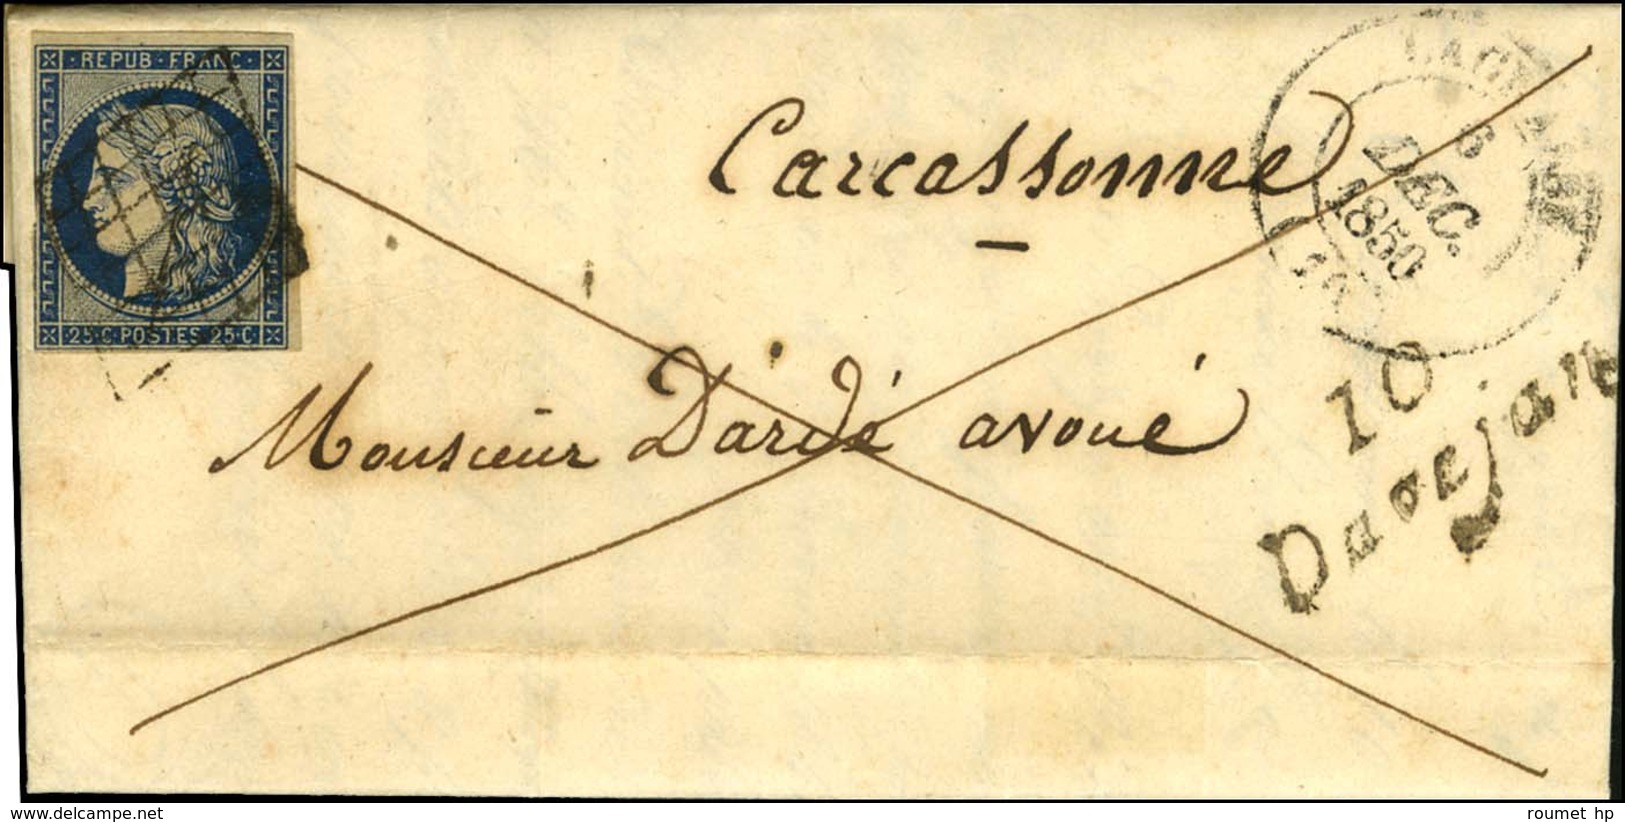 REPUB · FRANC ·
25 · C · POSTES 25 · C
6
DEC.
1850
Carcassonne
Monsieur Dardé avoué
10
Davejan
roumet hp
delcampe.net